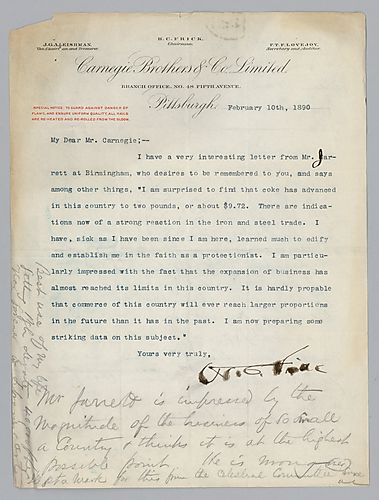 H. C. FRICK,
Chairman.
J.G.A. LEISHMAN,
Vice Chairman and Treasurer.
F.T.F. LOVEJOY,
Secretary and Auditor.
Carnegie Brothers & Co. Limited.
BRANCH OFFICE, NO. 48 FIFTH AVENUE.
Pittsburgh,
February 10th, 1890
SPECIAL NOTICE: TO GUARD AGAINST DANGER OF
FLAWS, AND ENSURE UNIFORM QUALITY, ALL RAILS
ARE REHEATED AND RE-ROLLED FROM THE BLOOM.
My Dear Mr. Carnegie;--
I have a very interesting letter from Mr. Jar-
rett at Birmingham, who desires to be remembered to you, and says
among other things, "I am surprised to find that coke has advanced
in this country to two pounds, or about $9.72. There are indica-
tions now of a strong reaction in the iron and steel trade. I
have, sick as I have been since I am here, learned much to edify
and establish me in the faith as a protectionist. I am particu-
larly impressed with the fact that the expansion of business has
almost reached its limits in this country. It is hardly probable
that commerce of this country will ever reach larger proportions
in the future than it has in the past. I am now preparing some
striking data on this subject."
Yours very truly,
Mr Jarrett is impressed by the
magnitude of the business of so small
a Country & thinks it is at the highest
possible point He is now
at work for this from the